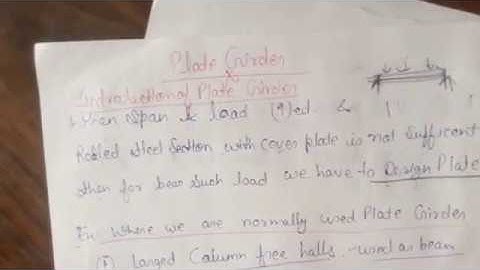 Plate Girder
Introduction of Plate Girder
When Span & load (↑)ed &
Rolled Steel Section with cover plate is not sufficient
then for bear such load we have to Design Plate
In where we are normally used Plate Girder
(i) Larged Column free halls - used as beam